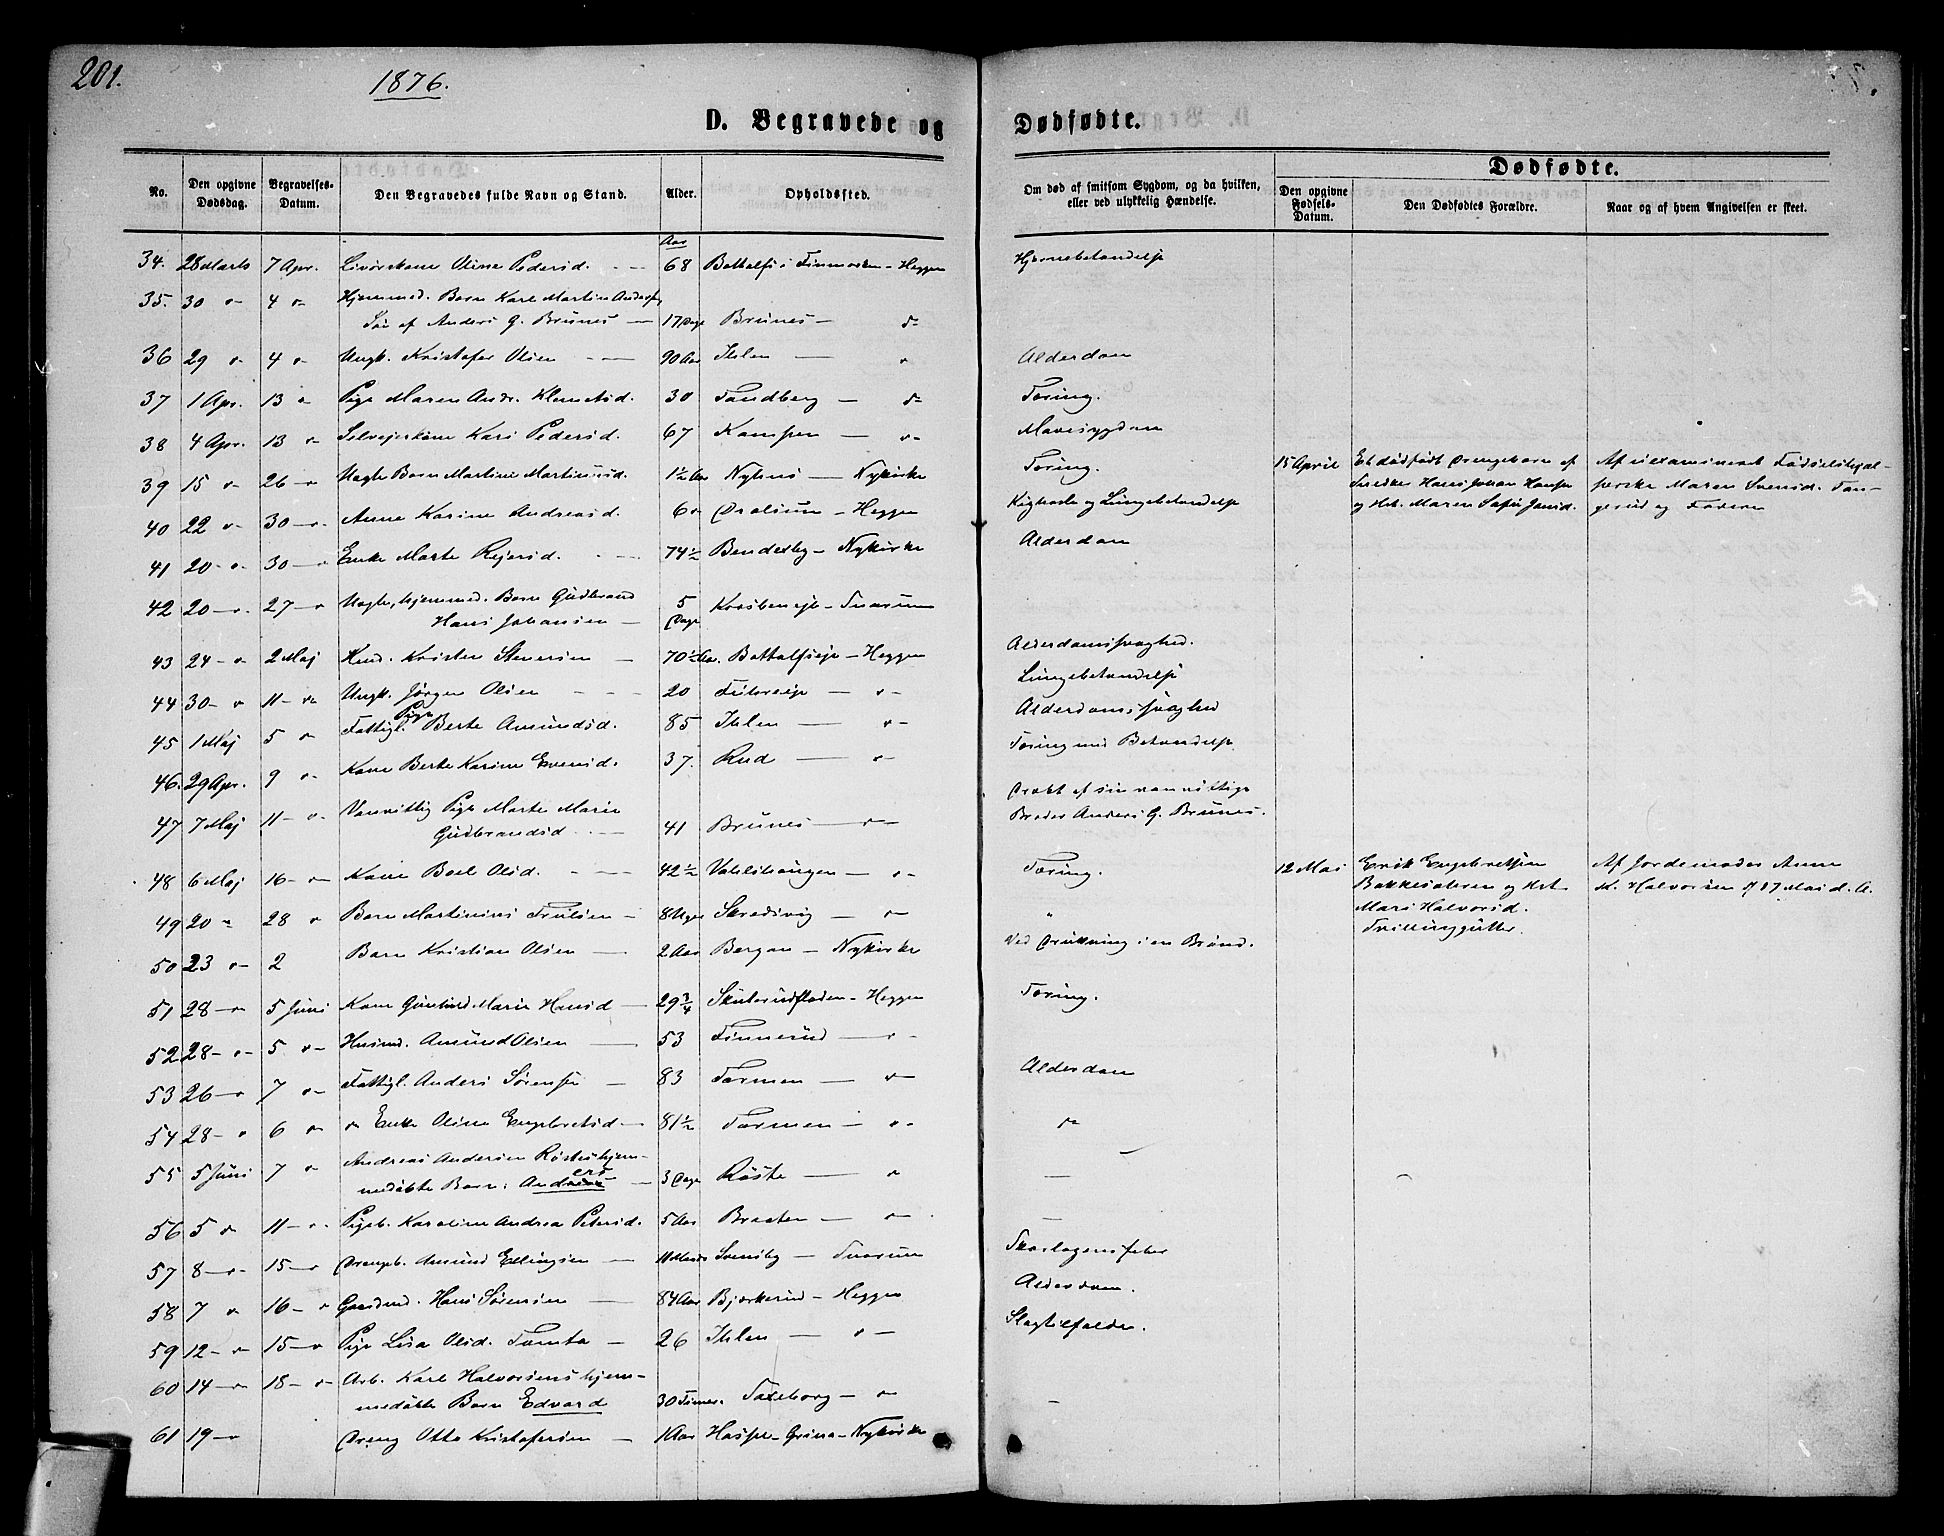 201.
1876.
D. Begravede og Dødfødte.
No.
Den opgivne Dødsdag.
Begravelses-Datum.
Den Begravedes fulde Navn og Stand.
Alder.
Opholdssted.
Om død af smitsom Sygdom, og da hvilken, eller ved ulykkelig Hændelse.
Dødfødte.
Den opgivne Fødsels-Datum.
Den Dødfødtes Forældre.
Naar og af hvem Angivelsen er skeet.
Aar
34. 28 Marts 7 Apr. Oline Pedersd. 68 Finmarken - Heggen Hjernebetændelse
35. 30 " 4 " Hjemmed. Barn Karl Martin Anders.
Søn af Anders G. Brunes — 17 Dage Brunes — "
36 29 " 4 " Ungk. Kristofer Olsen 90 Aar Ihlen — " Alderdom
37 1 Apr. 13 " Pige Maren Andr. Klemetsd. 30 Sandberg — " Tæring.
38 4 Apr. 13 " Selvejerkone Kari Pedersd. 67 Kampen — " Mavesygdom
39 15 " 26 " Uægte Barn Martine Martinusd. 1½ Aar Nyhus — Nykirke Tæring.
15 April Et dødfødt Drengebarn af
Snedker Hans Johan Hansen
og Hst. Maren Sofie Jansd.
Af uexamineret Fødselshjæl-
perske Maren Svensd.
og Faderen
40 22 " 30 " Anne Karine Andreasd. 6 " Dralsrum - Heggen Kighoste og Lungebetændelse
41 20 " 30 " Enke Marte Rejersd. 74½ Bendersby - Nykirke Alderdom
42 20 " 27 " Uægte, hjemmed. Barn Gudbrand
Hans Johansen — 5 Dage Korsbøneje - Snarum
43 24 " 2 Maj Husd. Kristen Stenersen — 70½ Aar. Bottolfseje - Heggen Alderdomssvaghed.
44 30 " 11 " Ungk. Jørgen Olsen 20 — " Lungebetændelse
45 1 Maj 5 " Fattigl. Pige Berte Amundsd. 85 Ihlen — " Alderdomssvaghed
46. 29 Apr. 9 " Kone Berte Karine Evensd. 37. Rud — " Tæring med Betændelse
47 7 Maj 11 " Vanvittig Pige Marte Marie
Gudbrandsd. 41 Brunes — " Dræbt af sin vanvittige
Broder Anders G. Brunes.
48 6 Maj 16 " Kone Boel Olsd. 42½ — " Tæring.
12 Mai Erik Engebretsen
Bakkesæteren og Hst.
Mari Halvorsd.
Tvillinggutter.
Af Jordemoder Anne
M. Halvorsen 17 Mai d. A.
49 20 " 28 " Barn Martinius Trulsen — 8 Uger Skredsvig — " "
50 23 " 2 Barn Kristian Olsen — 2 Aar Bergan - Nykirke Ved Drukning i en Brønd.
51 28 " 5 Juni Kone Gunhild Marie Hansd — 29¾ Skuterudfladen - Heggen Tæring.
52 28 " 5 " Husmd. Amund Olsen — 53 Finnerud — "
53 26 " 7 " Fattigl. Anders Sørensen — 83 Tarmen — " Alderdom
54 28 " 6 " " Enke Oline Engebretsd — 81½ Tarmen — " "
55 5 Juni 7 " Andreas Andersen Røstes hjem-
medøbte Barn: Anders — 3 Dage Røste — " —
56 5 " 11 " Pigeb. Karoline Andrea Petersd. 5 Aar Braaten — " —
57 8 " 15 " Drengeb. Amund Ellingsen — Svensby - Snarum Skarlagensfeber
58 7 " 16 " Gaardmd. Hans Sørensen — 84 Aar Bjørkerud - Heggen Alderdom.
59 12 " 15 " Pige Lisa Olsd. Tomta — 26 Ihlen — " Slagtilfælde.
60 14 " 18 " Arb. Karl Halvorsens hjem-
medøbte Barn Edvard 30 Timer. — " —
61 19 " Dreng Otto Kristofersen — 1 Aar Grina - Nykirke